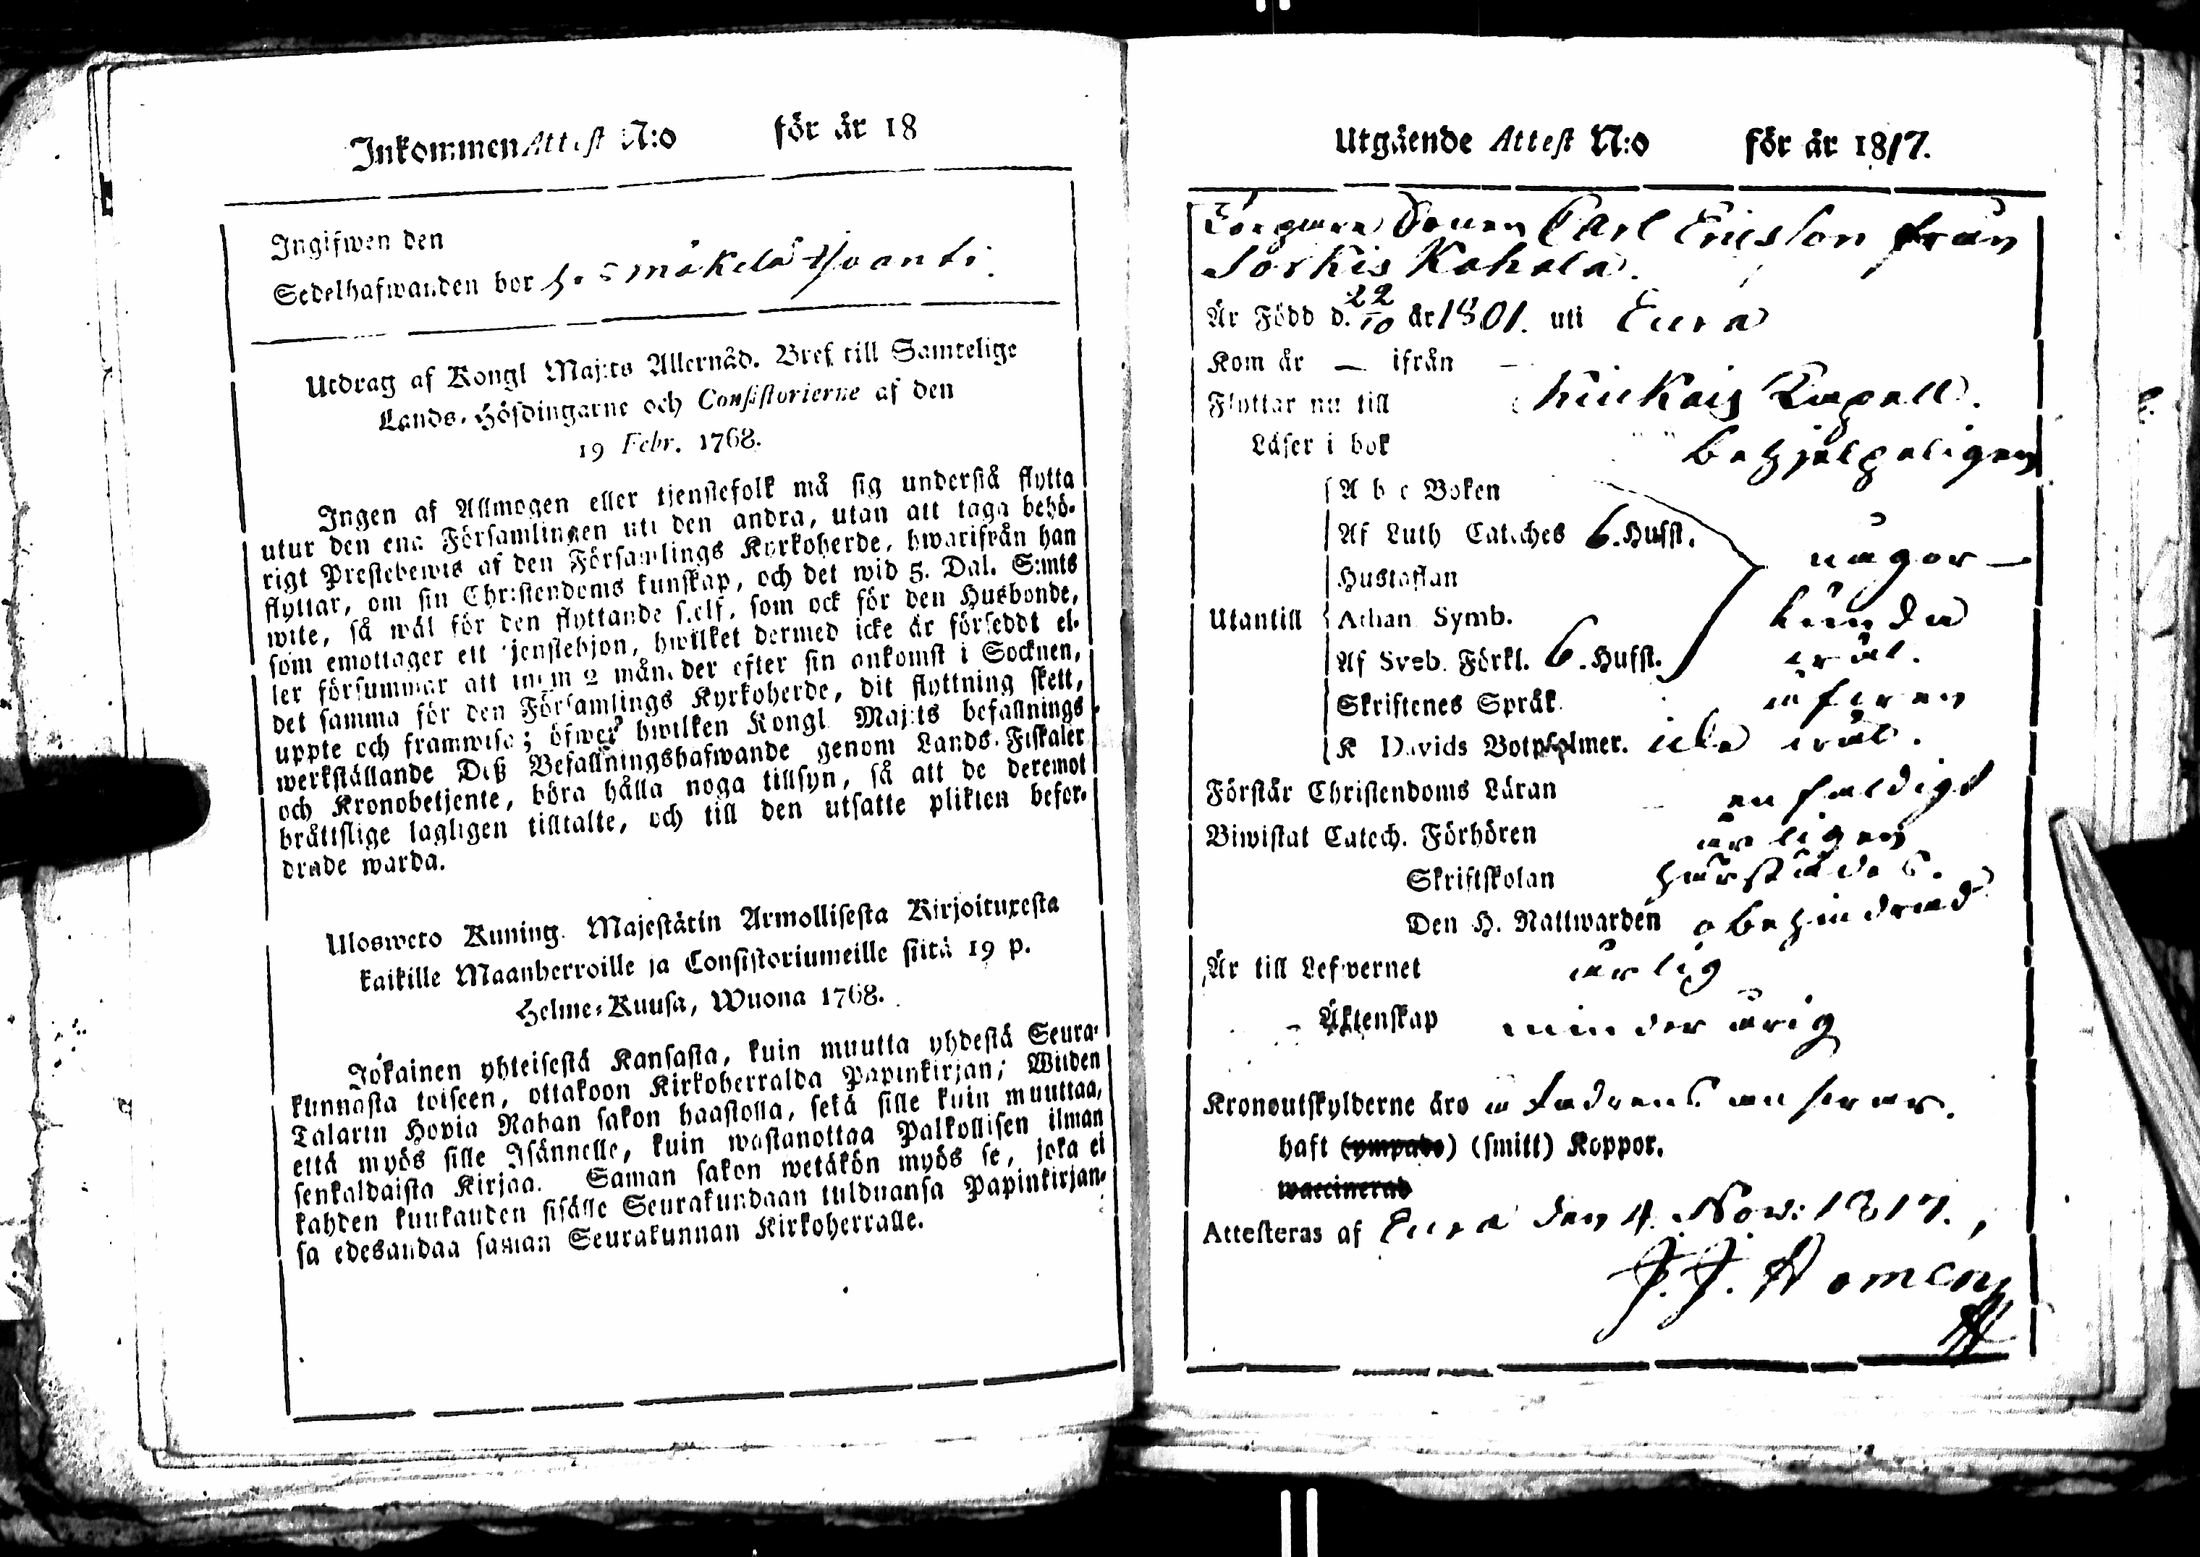 Inkommen Attest N:o för år 18
Ingifwen den
Sedelhafwanden bor
Utdrag af Kongl Maj:ts Allernåd. Bref till Samtelige
Lands-Höfdingarne och Consistorierne af den
19 Febr. 1768.
Ingen af Allmogen eller tjenstefolk må sig understå flytta
utur den ena Församlingen uti den andra, utan att taga behö-
rigt Prestebewis af den Församlings Kyrkoherde, hwarifrån han
flyttar, om sin Christendoms kunskap, och det wid 5. Dal. S:mts
wite, så wäl för den flyttande sielf, som ock för den Husbonde,
som emottager ett tjenstehjon, hwilket dermed icke är försedt el-
ler försummar att inom 2 månader efter sin ankomst i Socknen,
det samma för den Församlings Kyrkoherde, dit flyttning skett,
uppte och framwisa; öfwer hwilken Kongl Maj:ts befallnings
werkställande Deß Befallningshafwande genom Lands-Fiskaler
och Kronobetjente, böra hålla noga tillsyn, så att de deremot
bråttslige lagligen tilltalte, och till den utsatte plikten befor-
drade warda.
Ulosweto Kuning. Majestätin Armollisesta Kirjoituxesta
kaikille Maanherroille ja Consistoriumeille siitä 19 p.
Helme-Kuusa, Wuona 1768.
Jokainen yhteisestä Kansasta, kuin muutta yhdestä Seura-
kunnasta toiseen, ottakoon Kirkoherralda Papinkirjan; Wiiden
Talarin Hopia Rahan sakon haastolla, sekä sille kuin muuttaa,
että myös sille Isännelle, kuin wastanottaa Palkollisen ilman
senkaldaista Kirjaa. Saman sakon wetäkön myös se, joka ei
kahden kuukauden sisälle Seurakundaan tulduansa Papinkirjan-
sa edesandaa saman Seurakunnan Kirkoherralle.
Utgående Attest N:o för år 1817.
Carl Ericsson från
Sorkis Kahala.
Är Född d. 22/10 år 1801. uti Eura
Kom år — ifrån —
Flyttar nu till Kiukais Capell.
Läser i bok behjelpeligen
A b c Boken
Af Luth Cateches 6. Hufst. någor—
Hustaflan
Utantill Athan Symb. lunda
Af Sveb. Förkl. 6. Hufst. wäl.
Skriftenes Språk äfwen
K Davids Botpsalmer. icke wäl.
Förstår Christendoms Läran enfaldigt
Biwistat Catech. Förhören årligen
Skriftskolan härstädes.
Den H. Nattwarden obehindrad
Är till Lefwernet ärlig
Äktenskap minderårig
Kronoutskylderne äro å Fadrens answar.
haft (ympade) (smitt) Koppor.
waccinerad
Attesteras af Eura den 4. Nov: 1817.
J. J. Homén